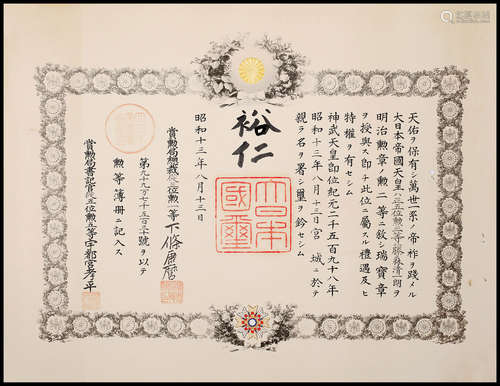 天佑ヲ保有シ萬世一系ノ帝祚ヲ踐メル
大日本帝國天皇ハ正五位勲三等藤森清一朗ヲ
明治勲章ノ勲二等ニ敘シ瑞寶章
ヲ授與ス即チ此位ニ屬スル禮遇及ヒ
特權ヲ有セシム
神武天皇即位紀元二千五百九十八年
昭和十三年八月十三日宮城ニ於テ
親ラ名ヲ署シ璽ヲ鈐セシム
裕仁
大日本國璽
昭和十三年八月十三日
賞勲局總裁從三位勲一等下條康麿
第九十九万七千五百三十號ヲ以テ
勲等簿冊ニ記入ス
賞勲局書記官從五位勲五等宇都宮孝平